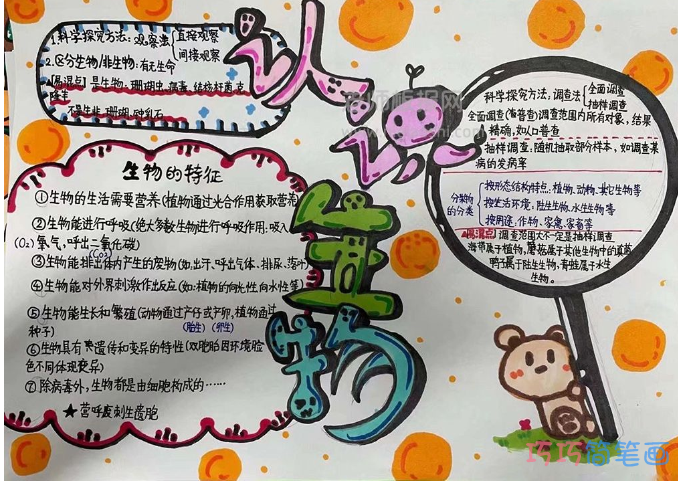 认识
生物
1.科学探究方法:观察法 直接观察
间接观察
2.区分生物/非生物:有无生命
易混点 是生物:珊瑚虫、病毒、结核杆菌、克
隆羊
不是生物:珊瑚、钟乳石
生物的特征
①生物的生活需要营养(植物通过光合作用获取营养)
②生物能进行呼吸(绝大多数生物进行呼吸作用:吸入
(O₂)氧气,呼出二氧化碳)
(CO₂)
③生物能排出体内产生的废物(如:出汗、呼出气体、排尿、落叶)
④生物能对外界刺激作出反应(如:植物的向光性、向水性等)
⑤生物能生长和繁殖(动物通过产仔或产卵,植物通过
种子)
(胎生) (卵生)
⑥生物具有遗传和变异的特性(双胞胎因环境脸
色不同体现变异)
⑦除病毒外,生物都是由细胞构成的……
★营呼废刺生遗胞
科学探究方法:调查法 全面调查
抽样调查
全面调查(省普查)调查范围内所有对象,结果
精确,如人口普查
抽样调查,随机抽取部分样本,如调查某
病的发病率
分类物
的分类
按形态结构特点、植物、动物、其它生物等
按生活环境,陆生生物、水生生物等
按用途、作物、家禽、家畜等
易混点 调查范围大不一定是抽样调查
海带属于植物,蘑菇属于其他生物中的真菌
鸭子属于陆生生物,青蛙属于水生
生物。
巧巧简笔画